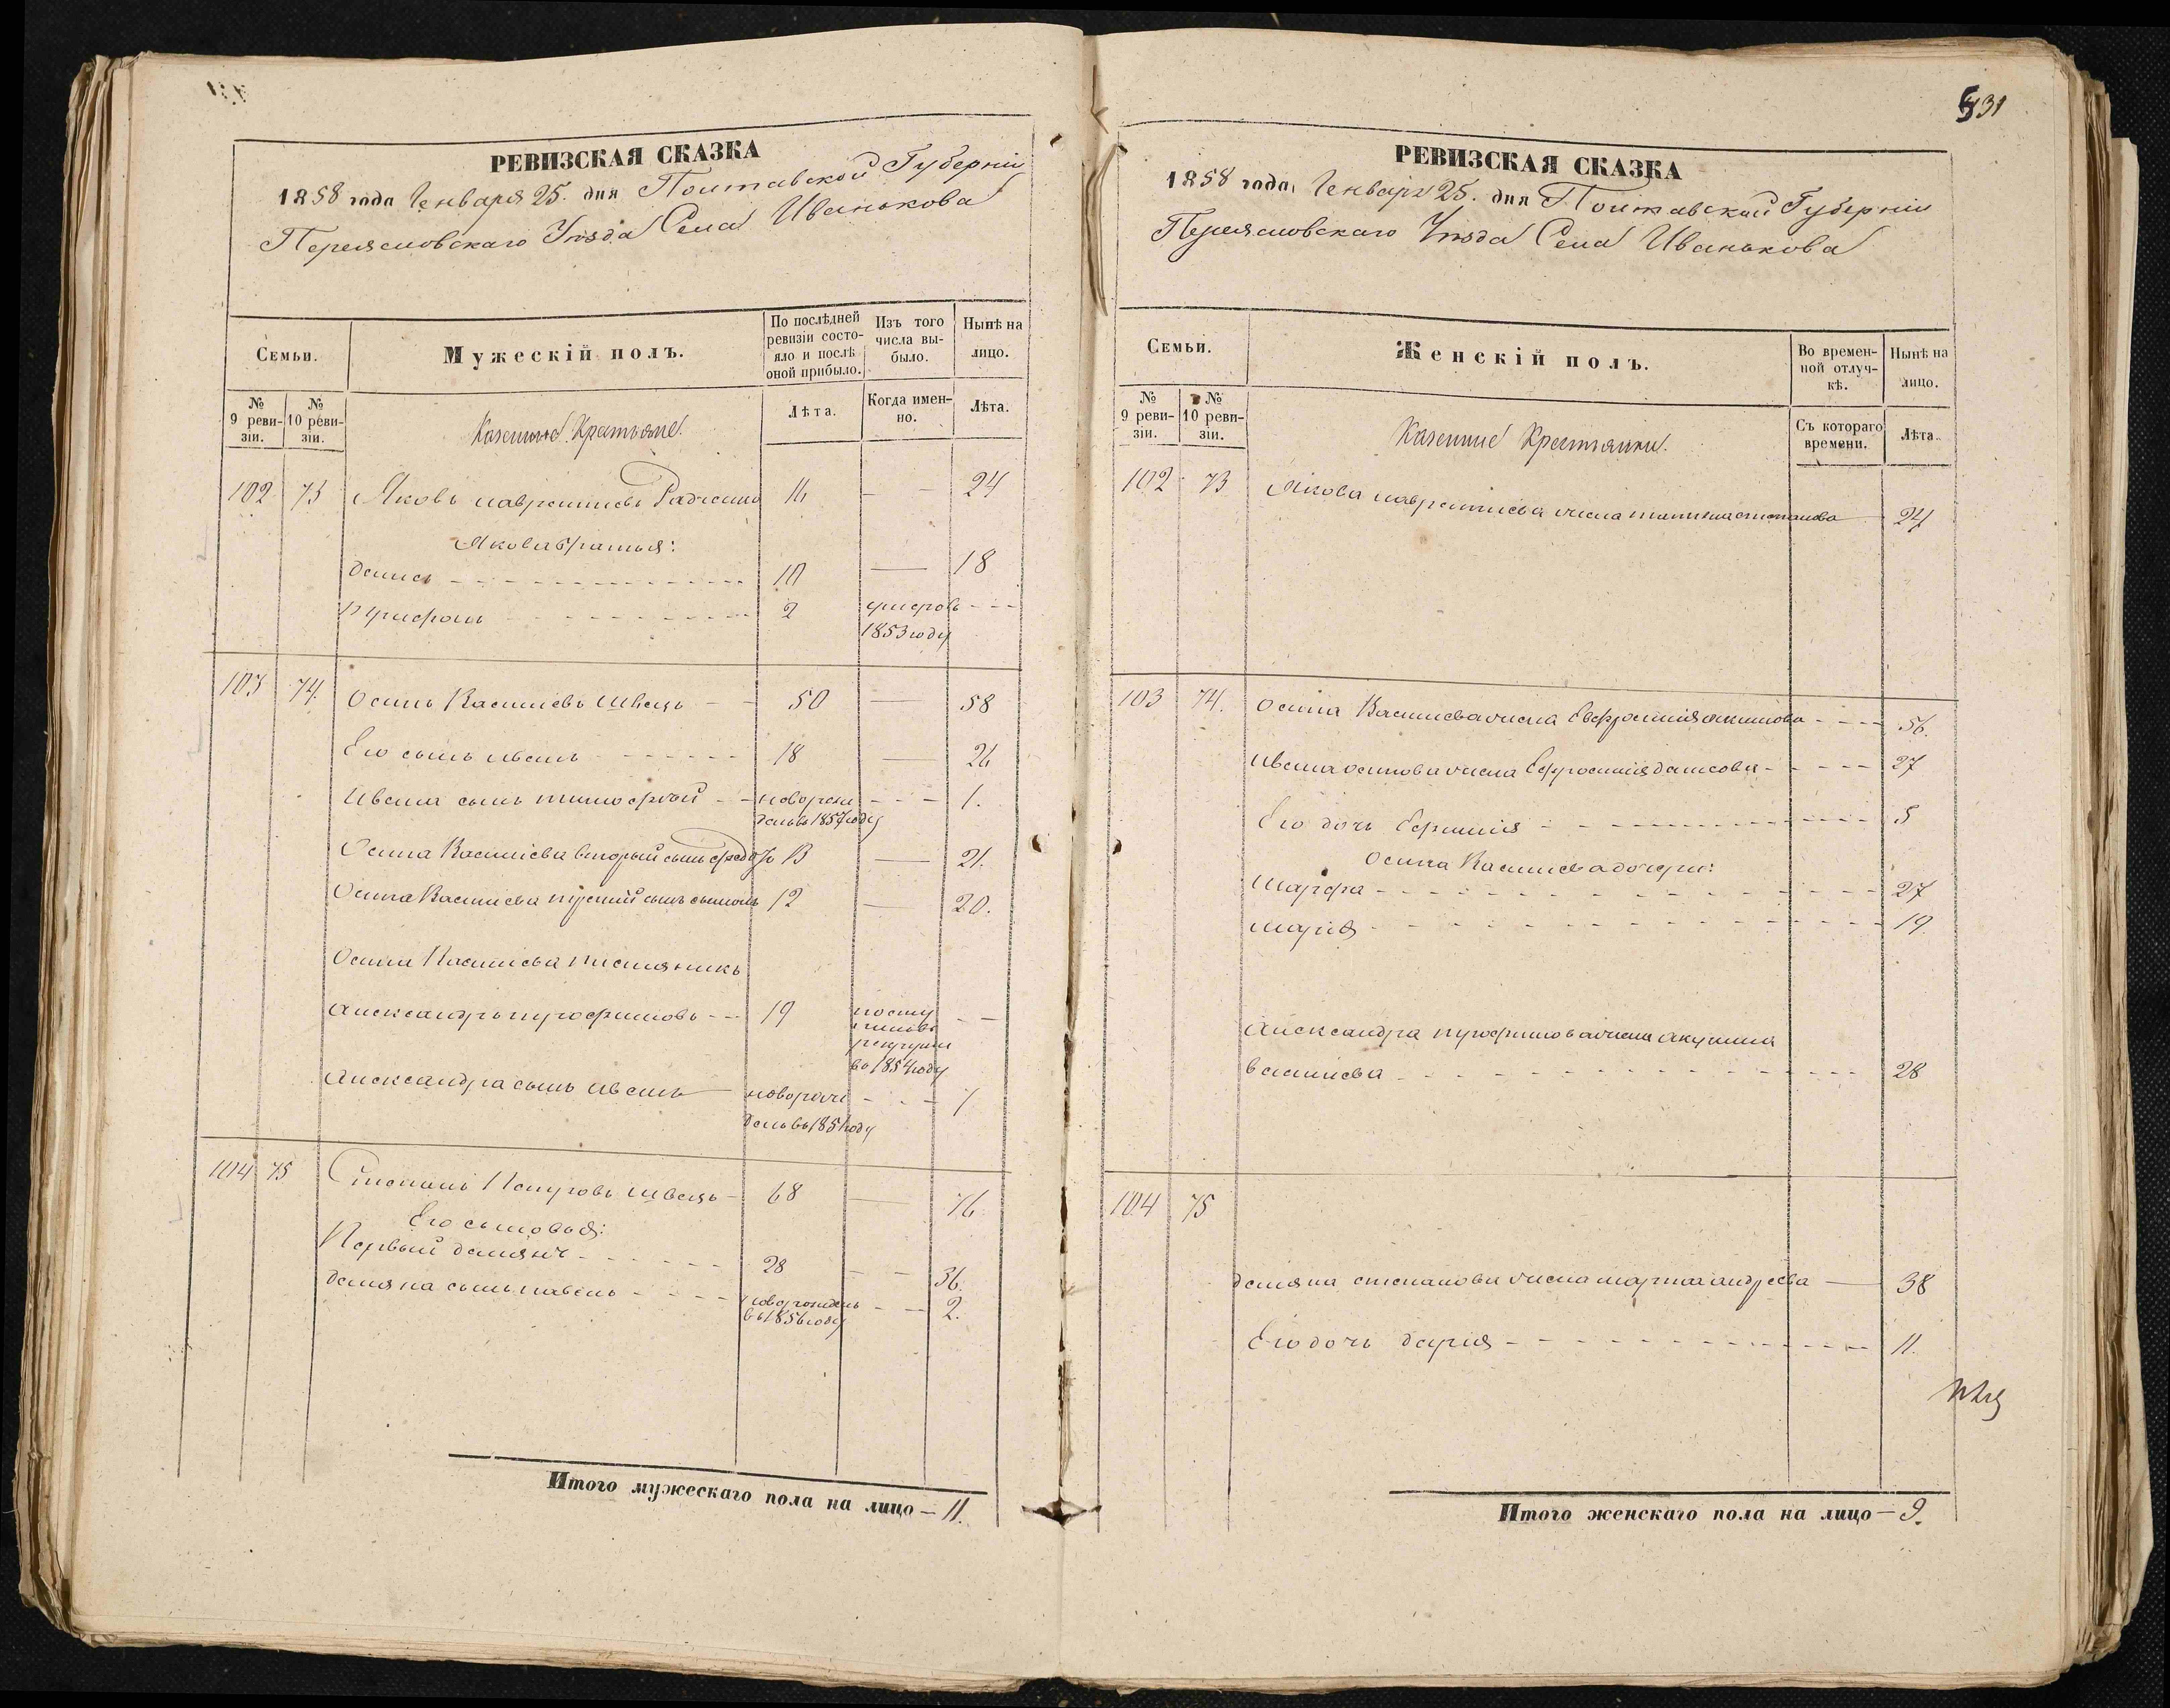 РЕВИЗСКАЯ СКАЗКА
1858 года Генваря 25. дня Полтавской Губерніи
Переясловскаго Уѣзда Села Иванькова
Семьи.
Мужескій полъ.
По послѣдней ревизіи состояло и послѣ оной прибыло.
Изъ того числа выбыло.
Нынѣ на лицо.
№ 9 ревизіи.
№ 10 ревизіи.
Казенные Крестьяне.
Лѣта.
Когда именно.
Лѣта.
102 73 Яковъ лаврентіевъ 16 — — 24
Якова братья:
денисъ 10 — 18
трифонъ 2 умеръ
1853 году
103 74. Осипъ Василіевъ Швецъ 50 — 58
Его сынъ иванъ 18 — 26
Ивана сынъ тимофѣй новорож 1.
денъ въ 1857 году
Осипа Василіева вторый сынъ 13 — 21.
Осипа Василіева третій сынъ 12 — 20.
Осипа Василіева племянникъ
александръ трофимовъ 19 посту
пилъ въ
рекруты
во 1854 году
александра сынъ иванъ новорож 1
денъ въ 185 году
104 75 Степанъ Петровъ швецъ 68 — 76.
Его сыновья:
Первый демянъ 28 — — 36.
демяна сынъ павелъ новорожденъ 2.
въ 1856 году
Итого мужескаго пола на лицо — 11.
531
РЕВИЗСКАЯ СКАЗКА
1858 года Генваря 25. дня Полтавской Губерніи
Переясловскаго Уѣзда Села Иванькова
Семьи.
Женскій полъ.
Во временной отлучкѣ.
Нынѣ на лицо.
№ 9 ревизіи.
№ 10 ревизіи.
Казенные Крестьянки.
Съ котораго времени.
Лѣта.
102 73 Якова лаврентіева жена татіяна степанова 24
103 74. Осипа Василіева жена Евфросинія акимова 56.
Ивана осипова жена Ефросинія 27
Его дочь Ефимія 5
Осипа Василіева дочери:
Марфа 27
марія 19
Александра трофимова жена акулина
василіева 28
104 75
демяна степанова жена марфа андреева 38
Его дочь дарія 11.
Итого женскаго пола на лицо — 9.